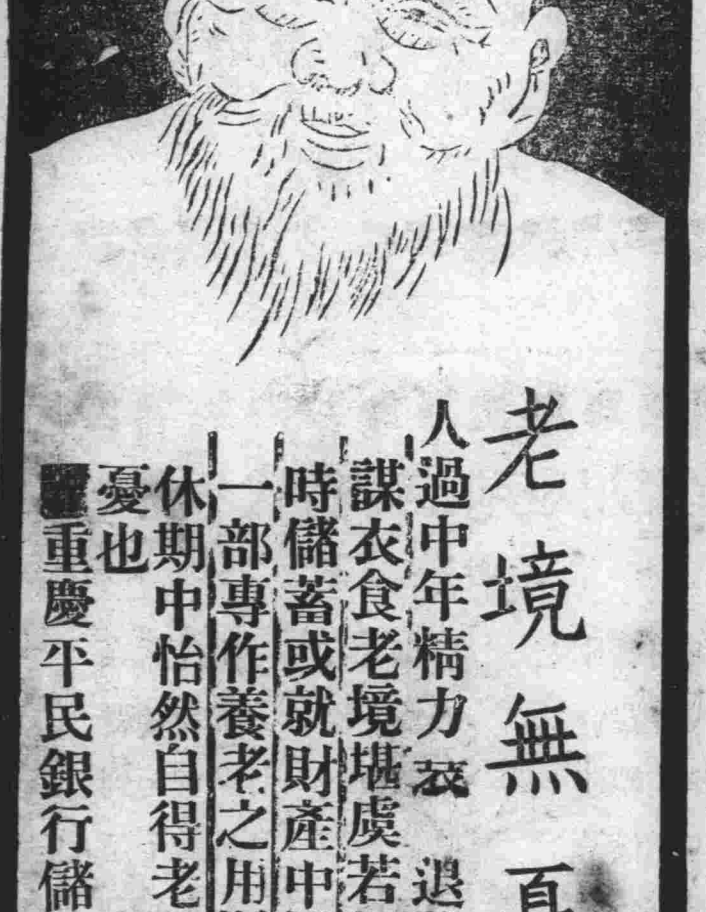 老境無
人過中年精力衰退
謀衣食老境堪虞若
時儲蓄或就財產中
一部專作養老之用
休期中怡然自得老
憂也
重慶平民銀行儲